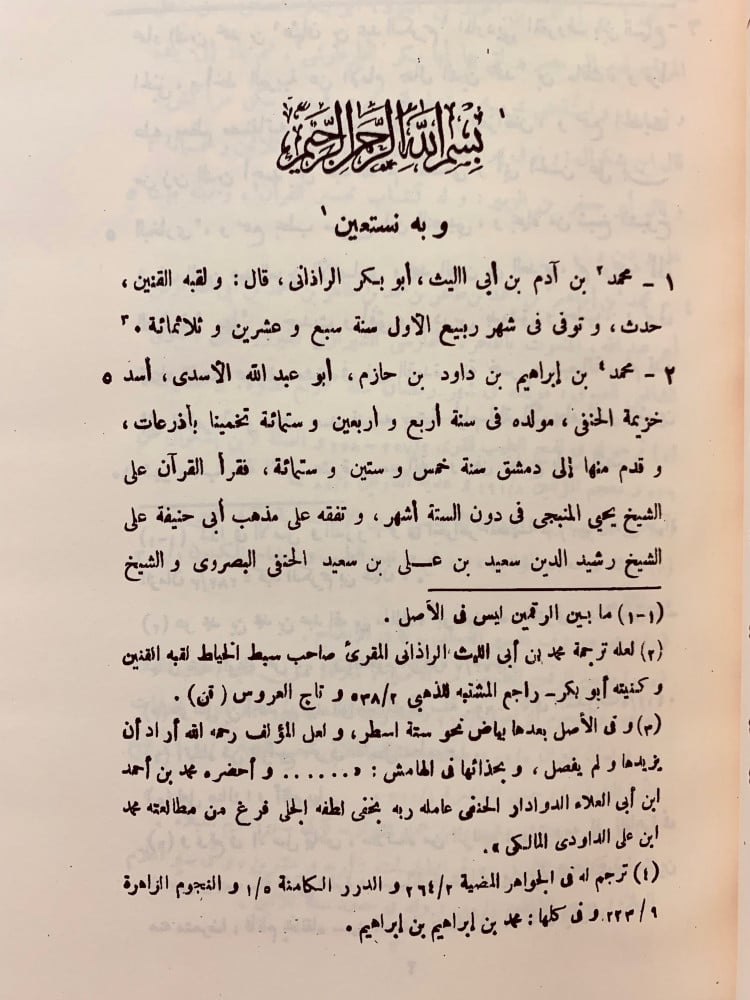 بسم الله الرحمن الرحيم ١
و به نستعين ١
١ - محمد ٢ بن آدم بن أبى الليث، أبو بكر الراذانى، قال: و لقبه القنين،
حدث، و توفى فى شهر ربيع الأول سنة سبع و عشرين و ثلاثمائة . ٣
٢ - محمد ٤ بن إبراهيم بن داود بن حازم، أبو عبد الله الأسدى، أسد ٥
خزيمة الحنفى، مولده فى سنة أربع و أربعين و ستمائة تخمينا بأذرعات،
و قدم منها إلى دمشق سنة خمس و ستين و ستمائة، فقرأ القرآن على
الشيخ يحيى المنبجى فى دون الستة أشهر، و تفقه على مذهب أبى حنيفة على
الشيخ رشيد الدين سعيد بن عـــلى بن سعيد الحنفى البصروى و الشيخ
(١-١) ما بين الرقمين ليس فى الأصل .
(٢) لعله ترجمة محمد بن أبى الليث الراذانى المقرئ صاحب سبط الخياط لقبه القنين
و كنيته أبو بكر - راجع المشتبه للذهبى ٥٣٨/٢ و تاج العروس ( قن) .
(٣) و فى الأصل بعدها بياض نحو ستة اسطر، و لعل المؤلف رحمه الله أراد أن
يزيدها و لم يفصل، و بحذائها فى الهامش : «...... و أحضره محمد بن أحمد
ابن أبى العلاء الدوادار الحنفى عامله ربه بخفى لطفه الجلى فرغ من مطالعته محمد
ابن على الداودى المالكى» .
(٤) ترجم له فى الجواهر المضية ٢٦٤/٢ و الدرر الكامنة ١/٥ و النجوم الزاهرة
٩ / ٢٢٣ و فى كلها : محمد بن إبراهيم بن إبراهيم .